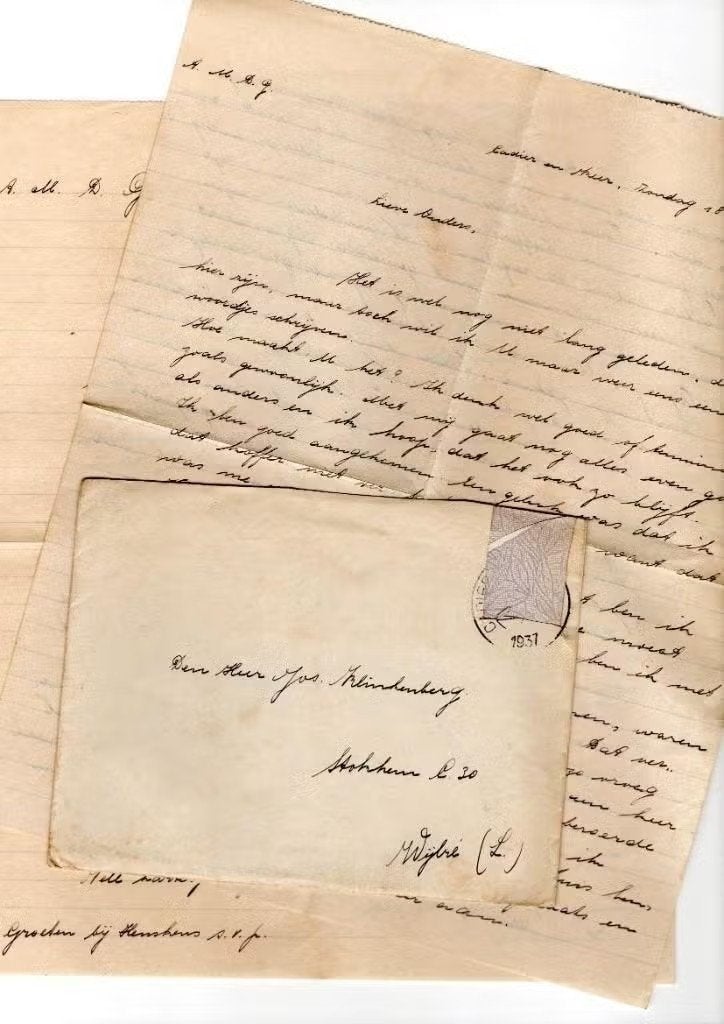 A. M. D. G.
Cadier en Keer, Zondag 18
Lieve Ouders,
Het is wel nog niet lang geleden, d
hier zijn, maar toch wil ik U maar weer eens een
woordjes schrijven.
Hoe maakt U het? Ik denk wel goed of tenmin
zoals gewoonlijk. Met mij gaat nog alles even go
als anders en ik hoop dat het ook zo blijft.
Ik ben goed aangekomen. Een geluk was dat ik
dat koffer niet
was me
want dat
t ben ik
moest
ben ik met
ren, waren
Dat ver-
zo vroeg
am heer
beroerde
ik
huis
plaats en
er aan.
A. M. D. G
C
1937
Den Heer Jos. Klinkenberg.
Stokhem C. 30
Wijlré (L.)
Groeten bij Henskens s.v.p.